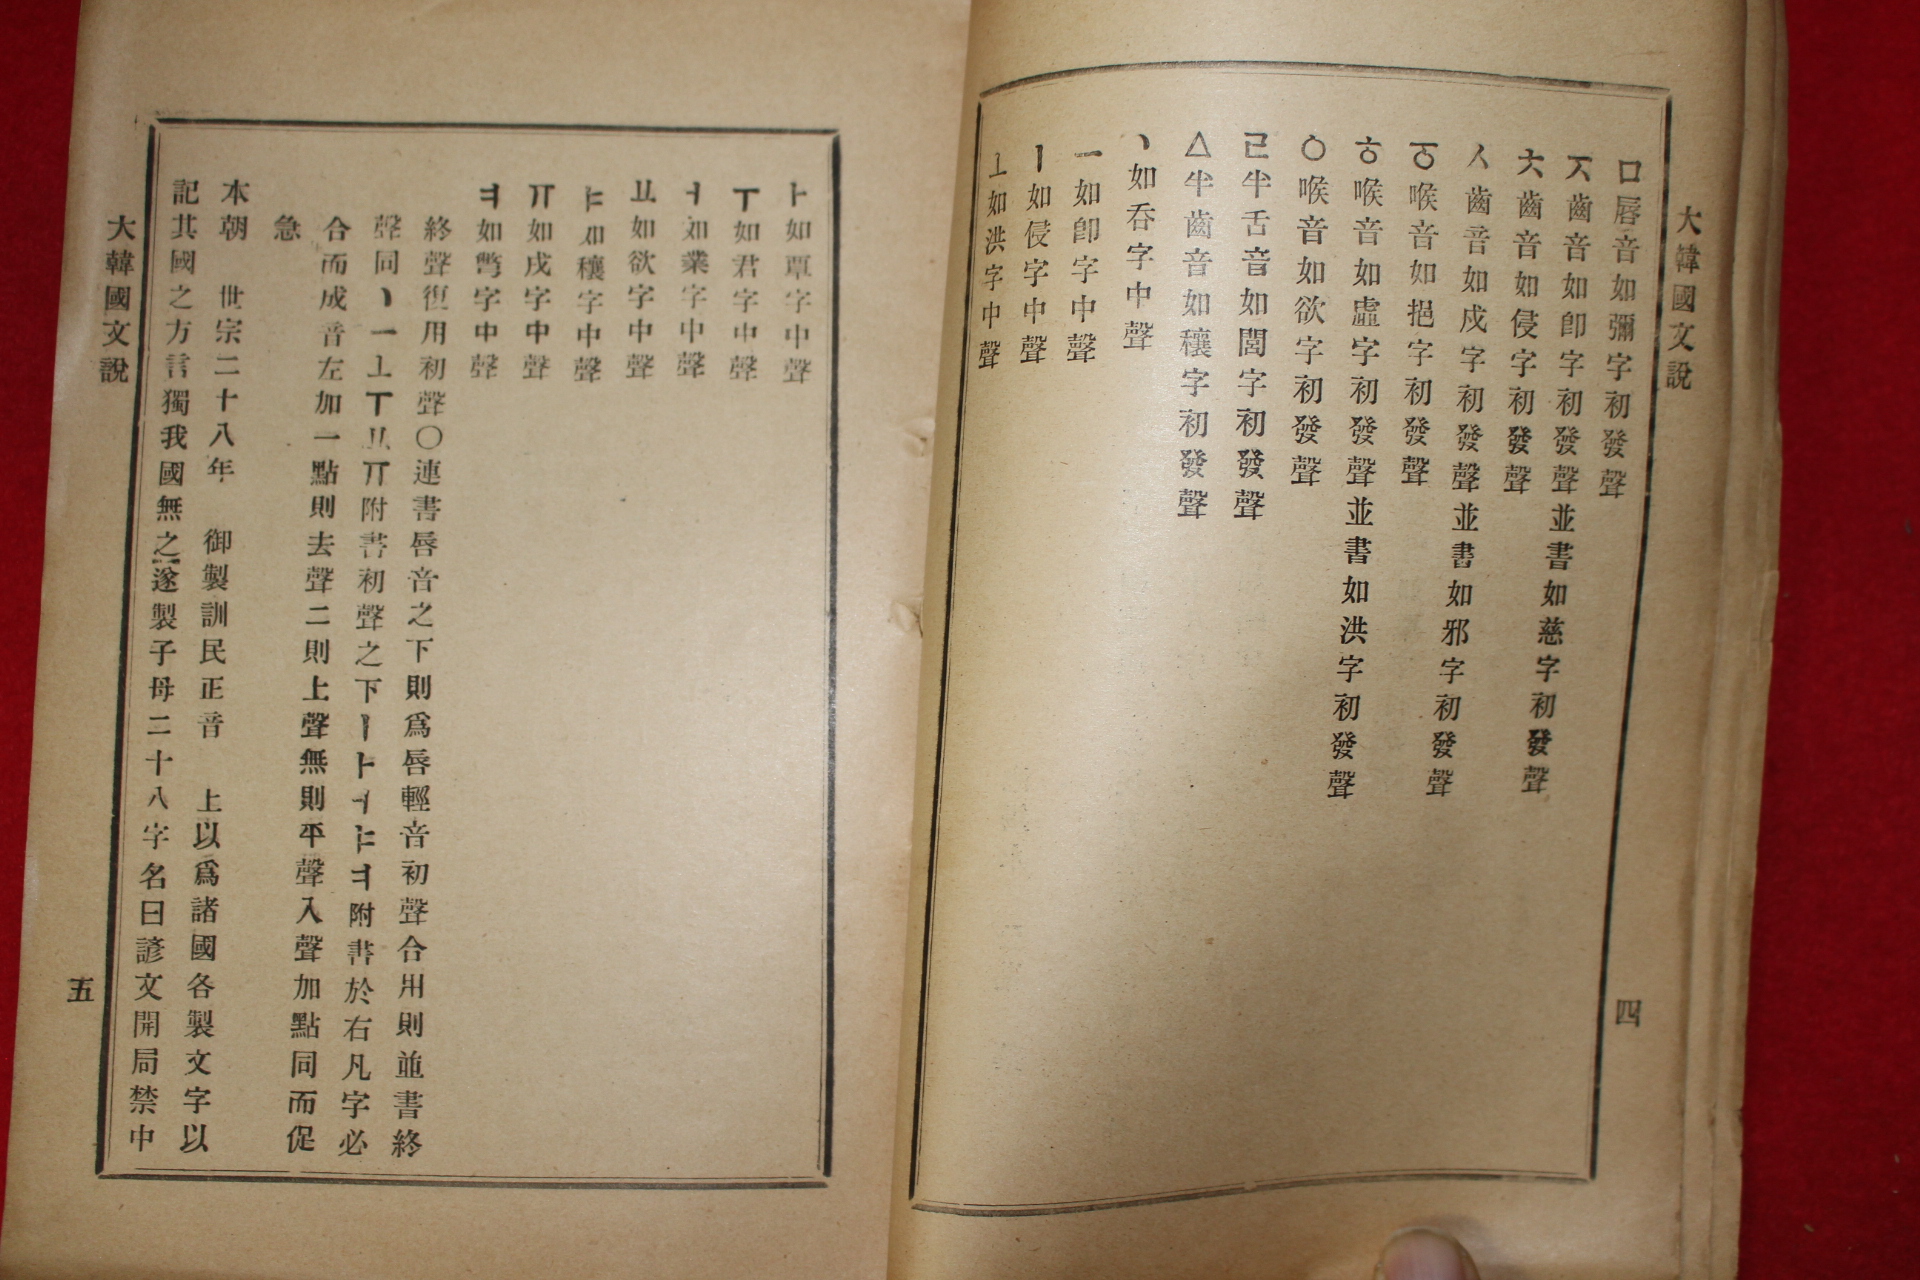 大韓國文說
四
ㅁ唇音如彌字初發聲
ㅈ齒音如卽字初發聲並書如慈字初發聲
ㅊ齒音如侵字初發聲
ㅅ齒音如戌字初發聲並書如邪字初發聲
ㆆ喉音如挹字初發聲
ㅎ喉音如虛字初發聲並書如洪字初發聲
ㅇ喉音如欲字初發聲
ㄹ半舌音如閭字初發聲
ㅿ半齒音如穰字初發聲
ㆍ如呑字中聲
ㅡ如卽字中聲
ㅣ如侵字中聲
ㅗ如洪字中聲
ㅏ如覃字中聲
ㅜ如君字中聲
ㅓ如業字中聲
ㅛ如欲字中聲
ㅑ如穰字中聲
ㅠ如戌字中聲
ㅕ如彆字中聲
終聲復用初聲〇連書唇音之下則爲唇輕音初聲合用則並書終
聲同ㆍㅡㅗㅜㅛㅠ附書初聲之下ㅣㅏㅓㅑㅕ附書於右凡字必
合而成音左加一點則去聲二則上聲無則平聲入聲加點同而促
急
本朝 世宗二十八年 御製訓民正音 上以爲諸國各製文字以
記其國之方言獨我國無之遂製子母二十八字名曰諺文開局禁中
大韓國文說
五